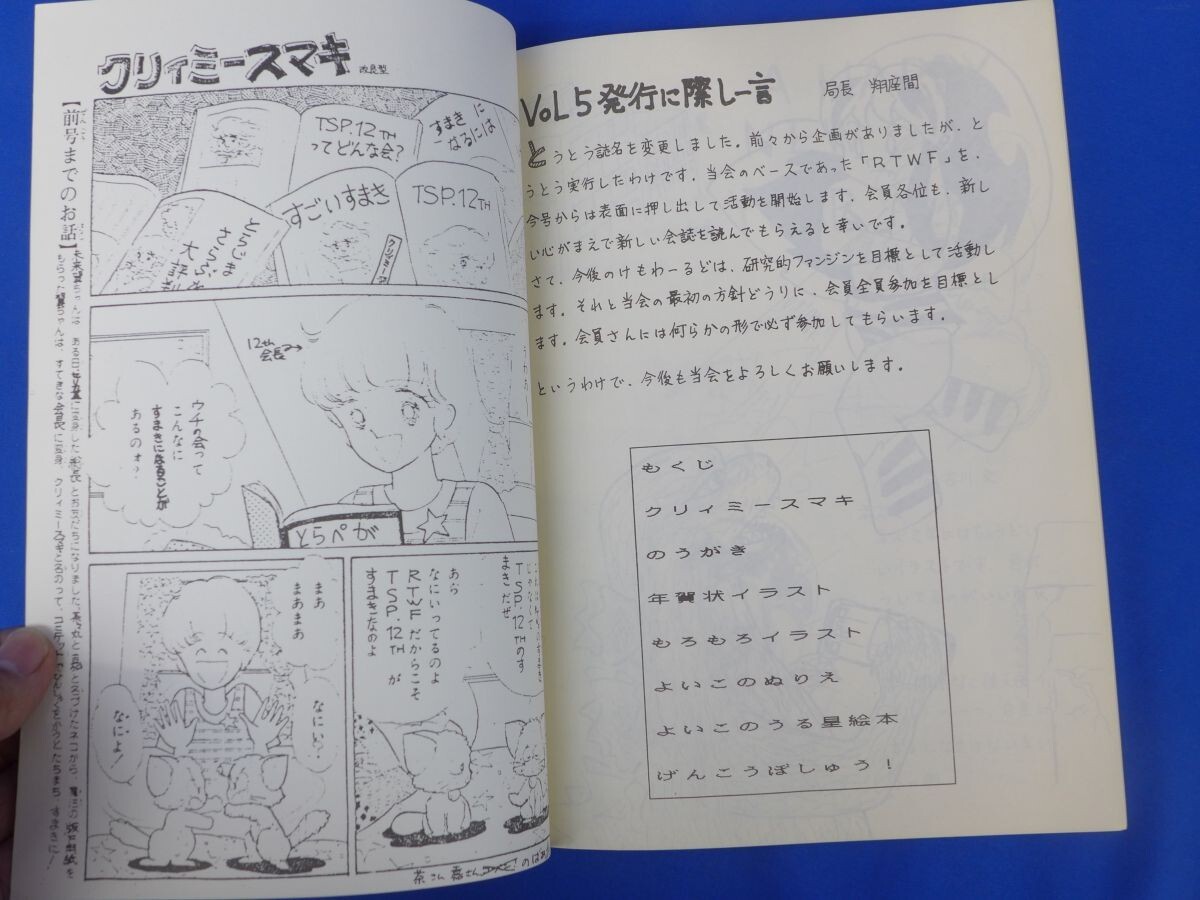 クリィミースマキ 改良型
【前号までのお話】
TSP.12TH
ってどんな会?
すまきに
なるには
すごいすまき
TSP.12TH
とらじま
さらぶ
大評
12th
会長→
うわあ
ウチの会って
こんなに
すまきになることが
あるのォ?
とらぺが
TSP.12THのす
まきだぜ
あら
なにいってるのよ
RTWFだからこそ
TSP.12THが
すまきなのよ
まあ
まあまあ
なにい?
なによ!
VOL5発行に際し一言
局長 翔座間
とうとう誌名を変更しました。前々から企画がありましたが、と
うとう実行したわけです。当会のベースであった「RTWF」を、
今号からは表面に押し出して活動を開始します。会員各位も、新し
い心がまえで新しい会誌を読んでもらえると幸いです。
さて、今後のけもわーるどは、研究的ファンジンを目標として活動し
ます。それと当会の最初の方針どうりに、会員全員参加を目標とし
ます。会員さんには何らかの形で必ず参加してもらいます。
というわけで、今後も当会をよろしくお願いします。
もくじ
クリィミースマキ
のうがき
年賀状イラスト
もろもろイラスト
よいこのぬりえ
よいこのうる星絵本
げんこうぼしゅう!